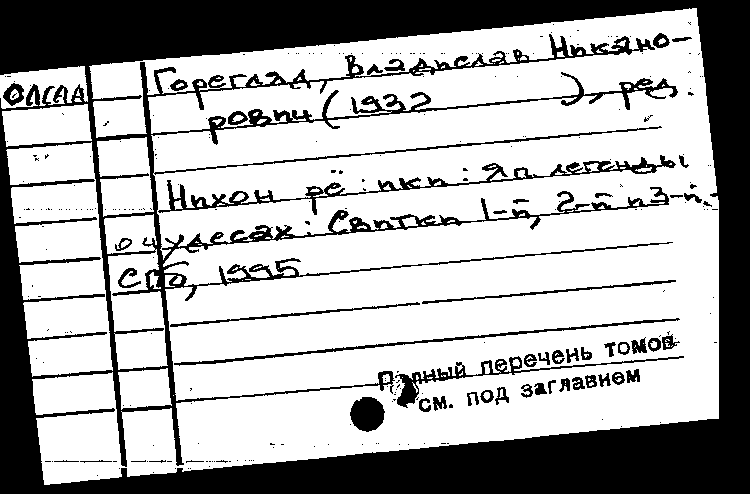 ОЛСАА
Горегляд, Владислав Никано-
рович (1932 ), ред.
Нихон рё : ики : Яп. легенды
о чудесах : Свитки 1-й, 2-й и 3-й.-
СПб, 1995
Полный перечень томов
см. под заглавием